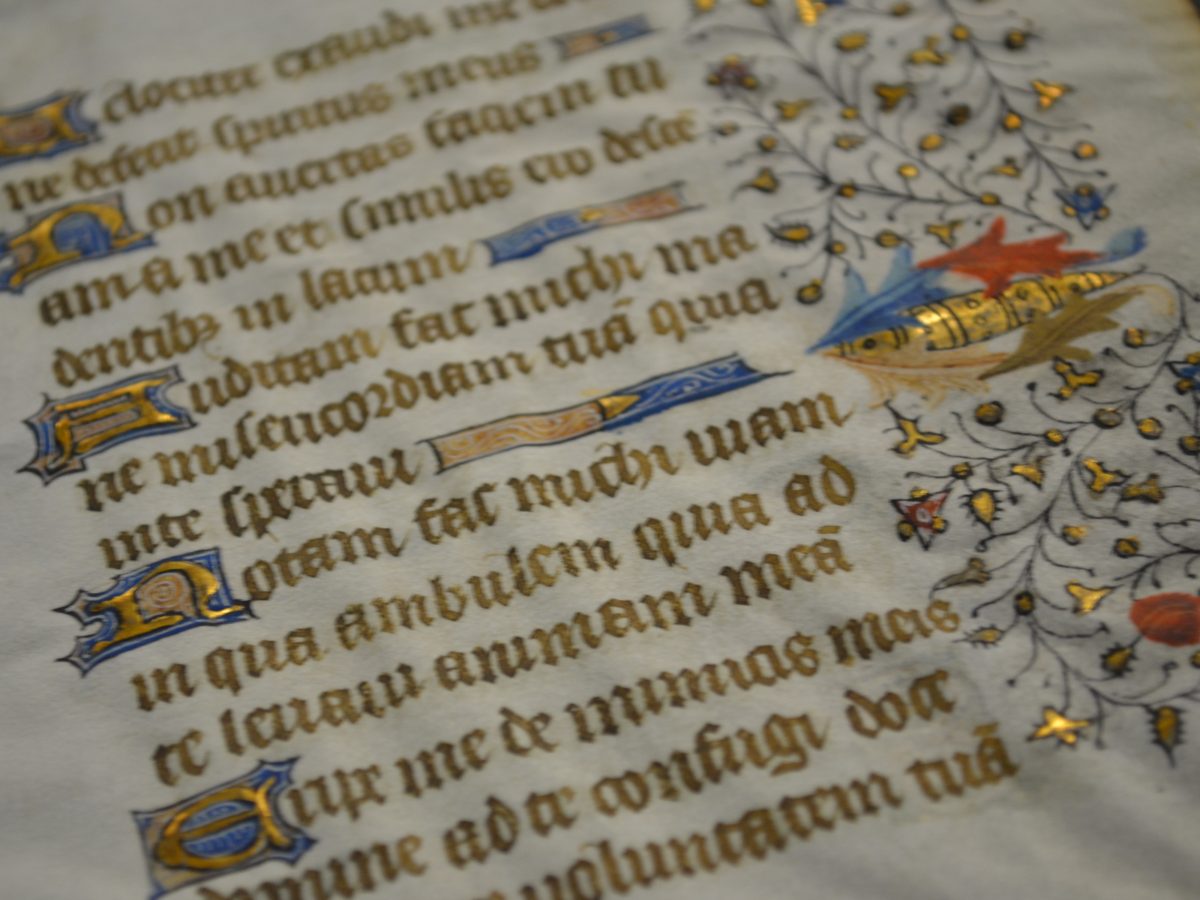 elociter exaudi me
ne defecit spiritus meus
Non avertas faciem tu
am a me et similis ero desce
dentibȝ in lacum
Auditam fac michi ma
ne misericordiam tuā quia
in te speravi
Notam fac michi viam
in qua ambulem quia ad
te levavi animam meā
Eripe me de inimicis meis
domine ad te confugi doce
voluntatem tuā